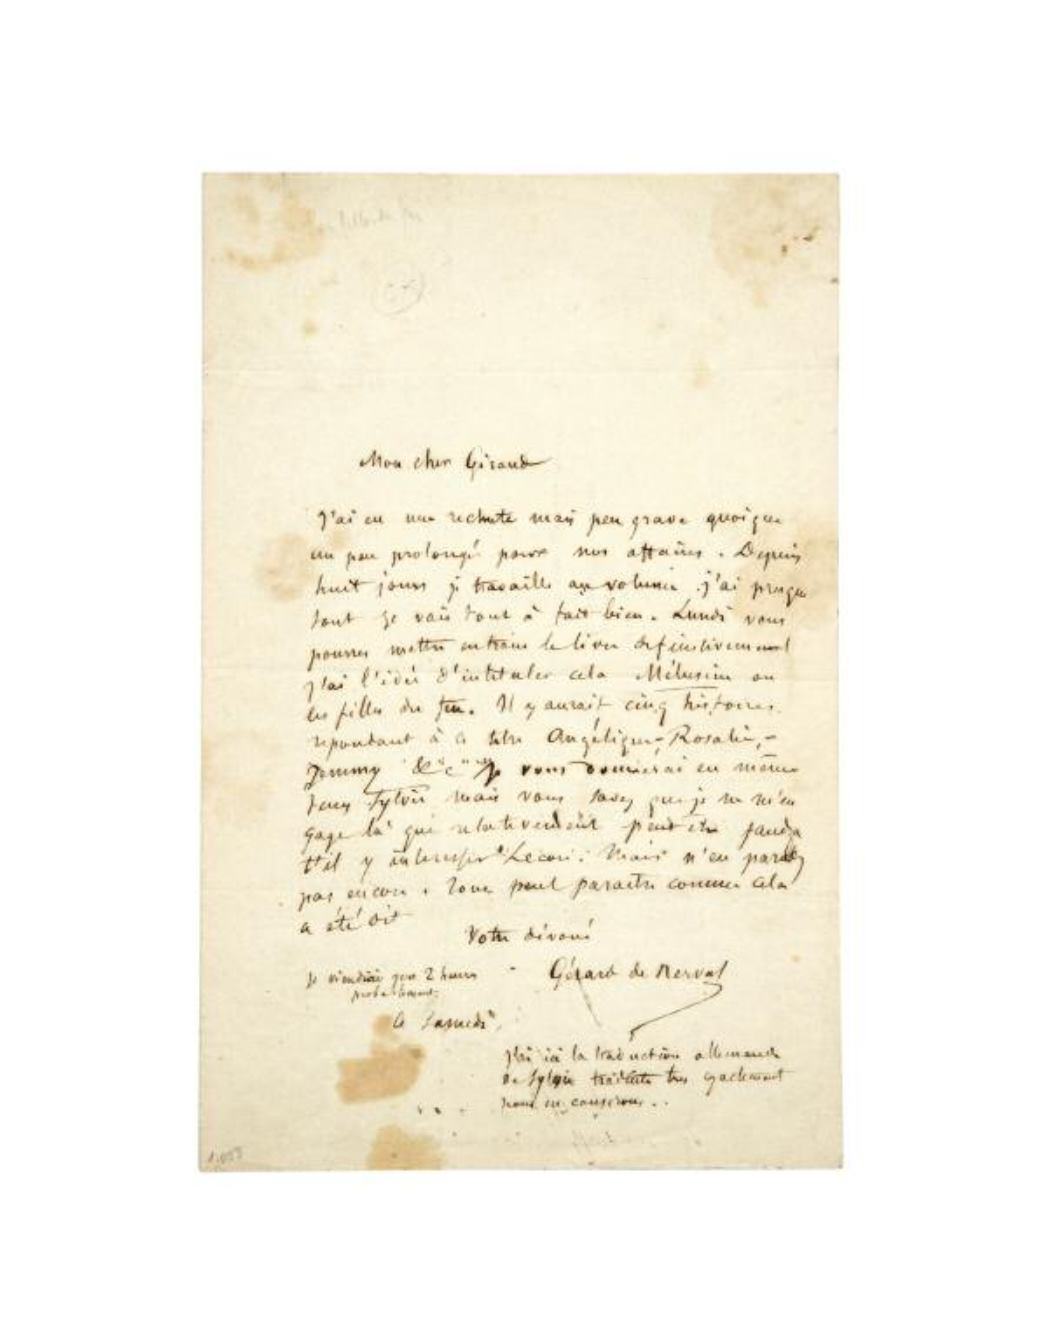 Mon cher Giraud
J'ai eu une rechute mais peu grave quoique
un peu prolongé pour nos affaires. Depuis
huit jours je travaille au volume. j'ai presque
tout je vais tout à fait bien. Lundi vous
pourrez mettre en train le livre definitivement
J'ai l'idée d'intituler cela Mélusine ou
les filles du feu. Il y aurait cinq histoires
repondant à ce titre Angélique, Rosalie, –
Jemmy &c Je vous donnerai en même
temps Sylvie mais vous savez que je ne m'en
gage là que relativement peut etre faudra
t'il y interesser Lecou. Mais n'en parlez
pas encore. Tout peut paraitre comme cela
a été dit
Votre dévoué
Gérard de Nerval
Je viendrai vers 2 heures
probablement.
ce Samedi
J'ai ici la traduction allemande
de Sylvie traduite tres exactement
nous en causerons..